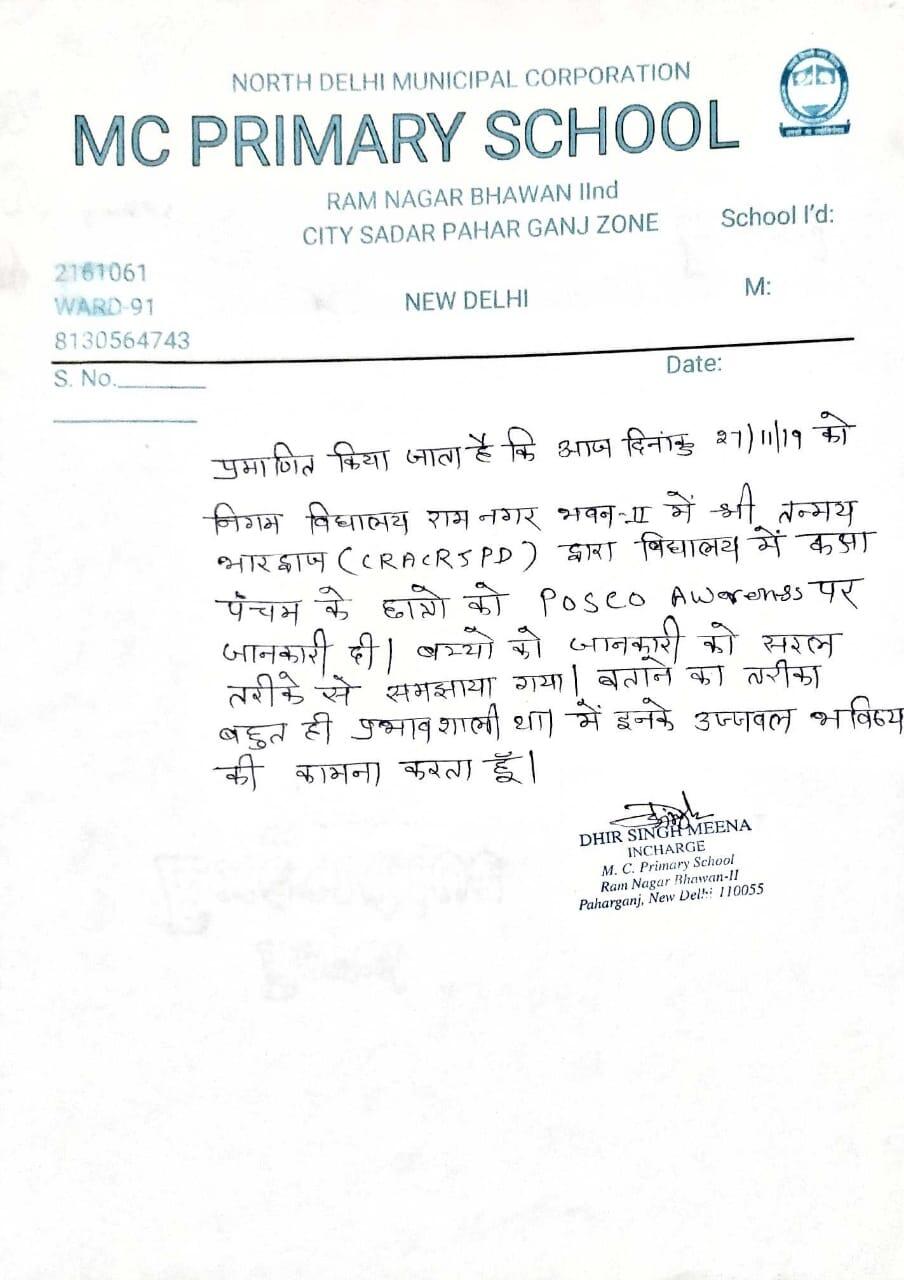 NORTH DELHI MUNICIPAL CORPORATION
MC PRIMARY SCHOOL
RAM NAGAR BHAWAN IInd
CITY SADAR PAHAR GANJ ZONE
School I'd:
2161061
WARD-91
NEW DELHI
M:
8130564743
S. No.
Date:
प्रमाणित किया जाता है कि आज दिनांक 27/11/19 को
निगम विद्यालय राम नगर भवन-II में श्री तन्मय
भारद्वाज (CRACRSPD) द्वारा विद्यालय में कक्षा
पंचम के छात्रो को POSCO Awarenss पर
जानकारी दी। बच्चो को जानकारी को सरल
तरीके से समझाया गया। बताने का तरीका
बहुत ही प्रभावशाली था। में इनके उज्जवल भविष्य
की कामना करता हूँ।
DHIR SINGH MEENA
INCHARGE
M. C. Primary School
Ram Nagar Bhawan-II
Paharganj, New Delhi 110055